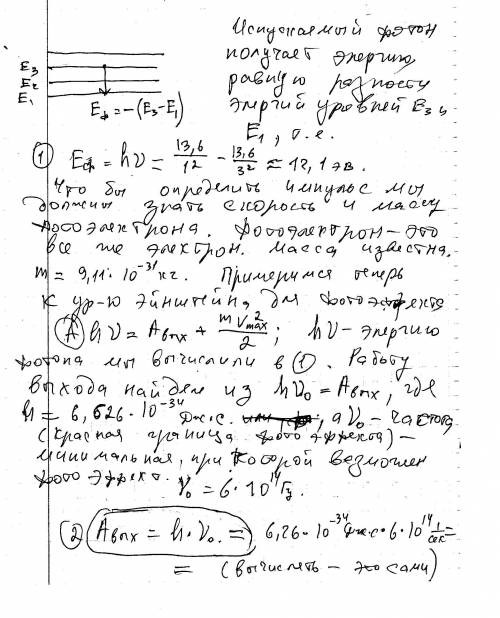 Испускаемый фотон
получает энергию
равную разности
энергий уровней E₃ и
E₁, т.е.
E₃
E₂
E₁
Eф = -(E₃-E₁)
① Eф = hν = 13,6/12 - 13,6/3² ≈ 12,1 эв.
Что бы определить импульс мы
должны знать скорость и массу
фотоэлектрона. Фотоэлектрон - это
все же электрон. Масса известна.
m = 9,11·10⁻³¹ кг. Примеримся теперь
к ур-ю Эйнштейна для фотоэффекта
Ⓐ hν = Aвых + mv²max/2; hν - энергию
фотона мы вычислили в ①. Работу
выхода найдем из hν₀ = Aвых, где
h = 6,626·10⁻³⁴ Дж·с. , а ν₀ - частота
(красная граница фотоэффекта) -
минимальная, при которой возможен
фотоэффект. ν₀ = 6·10¹⁴ Гц.
② Aвых = h·ν₀. = 6,26·10⁻³⁴ Дж·с·6·10¹⁴ 1/сек =
= (вычислять - это сами)